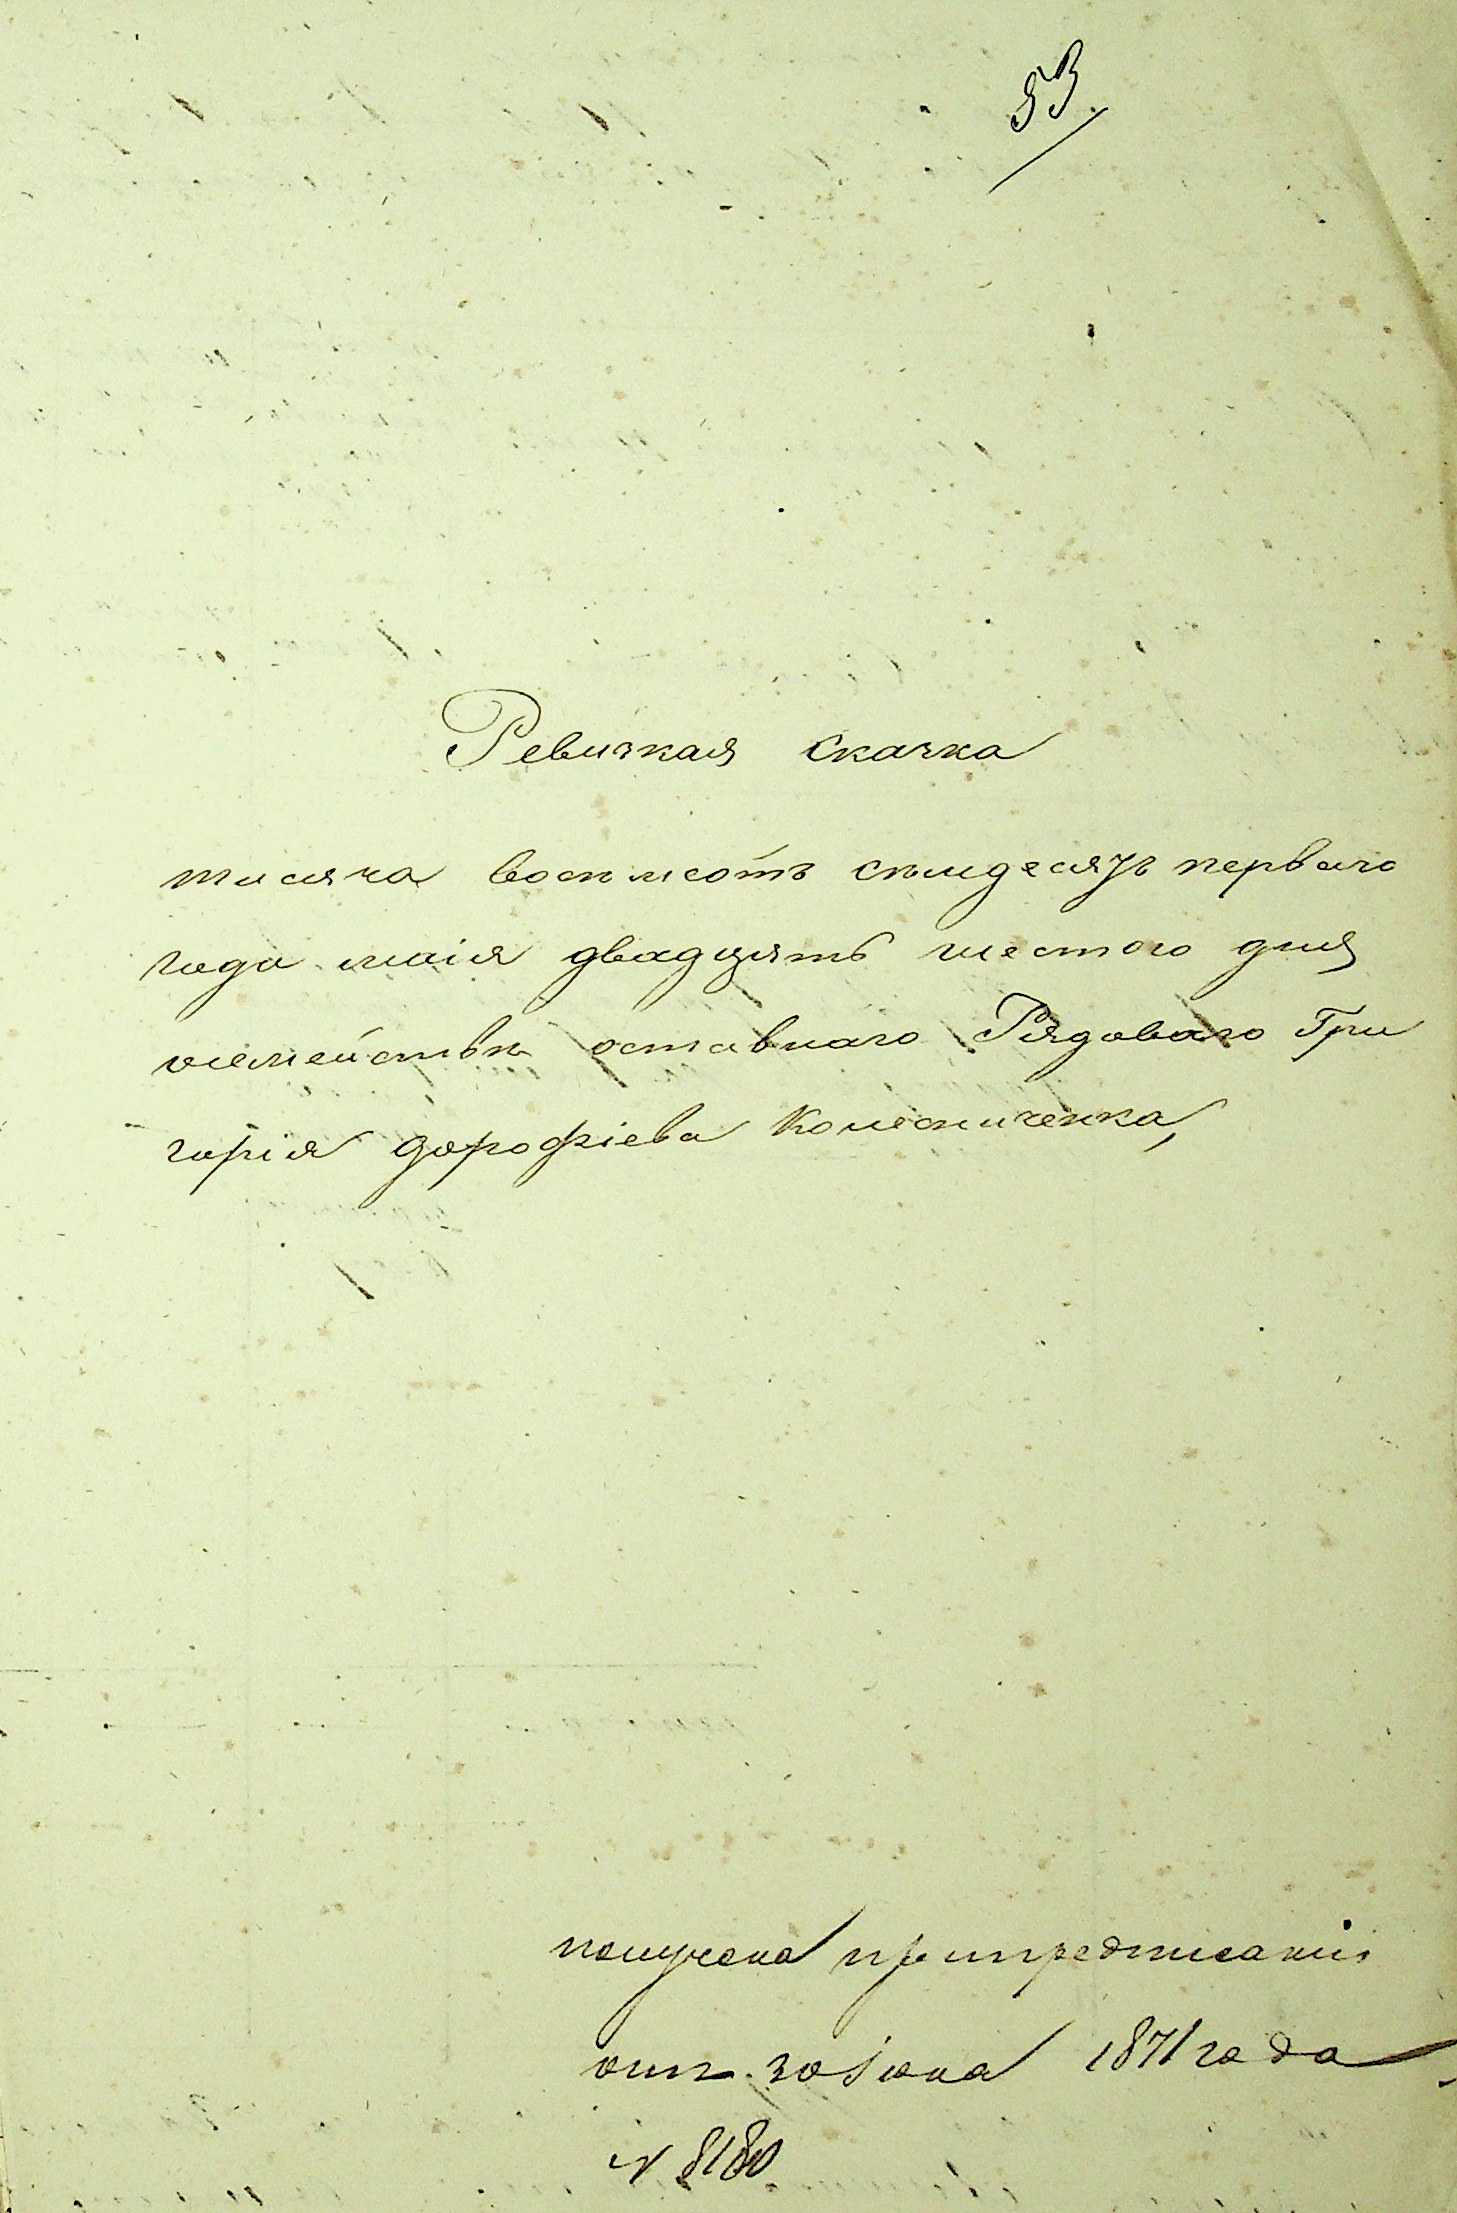 53.
Ревизкая сказка
тисяча восьмсотъ семдесятъ перваго
года маія двадцять шестого дня
осемействѣ оставнаго Рядоваго Гри
горія дорофіева Колесниченка,
получена припредписаніи
отъ 30 іюня 1871 года
N 8180